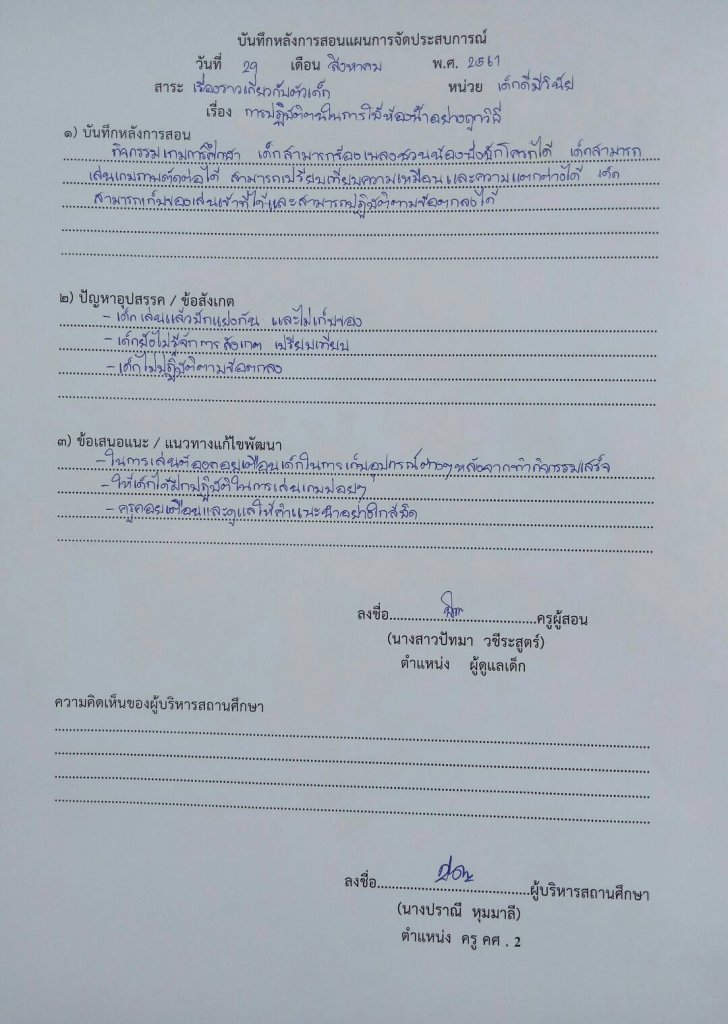 บันทึกหลังการสอนแผนการจัดประสบการณ์
วันที่ 29 เดือน สิงหาคม พ.ศ. 2561
สาระ เรื่องราวเกี่ยวกับตัวเด็ก หน่วย เด็กดีมีวินัย
เรื่อง การปฏิบัติตนในการใช้ห้องน้ำอย่างถูกวิธี
๑) บันทึกหลังการสอน
กิจกรรมเกมการศึกษา เด็กสามารถร้องเพลงชวนน้องนั่งชักโครกได้ เด็กสามารถ
เล่นเกมภาพตัดต่อได้ สามารถเปรียบเทียบความเหมือนและความแตกต่างได้ เด็ก
สามารถเก็บของเล่นเข้าที่ได้และสามารถปฏิบัติตามข้อตกลงได้
๒) ปัญหาอุปสรรค / ข้อสังเกต
- เด็กเล่นแล้วมักแย่งกัน และไม่เก็บของ
- เด็กยังไม่รู้จักการสังเกต เปรียบเทียบ
- เด็กไม่ปฏิบัติตามข้อตกลง
๓) ข้อเสนอแนะ / แนวทางแก้ไขพัฒนา
- ในการเล่นต้องคอยเตือนเด็กในการเก็บอุปกรณ์ต่างๆหลังจากทำกิจกรรมเสร็จ
- ให้เด็กได้ฝึกปฏิบัติในการเล่นเกมบ่อยๆ
- ครูคอยเตือนและดูแลให้คำแนะนำอย่างใกล้ชิด
ลงชื่อ....................ครูผู้สอน
(นางสาวปัทมา วชีระสูตร์)
ตำแหน่ง ผู้ดูแลเด็ก
ความคิดเห็นของผู้บริหารสถานศึกษา
ลงชื่อ....................ผู้บริหารสถานศึกษา
(นางปราณี หุมมาลี)
ตำแหน่ง ครู คศ . 2